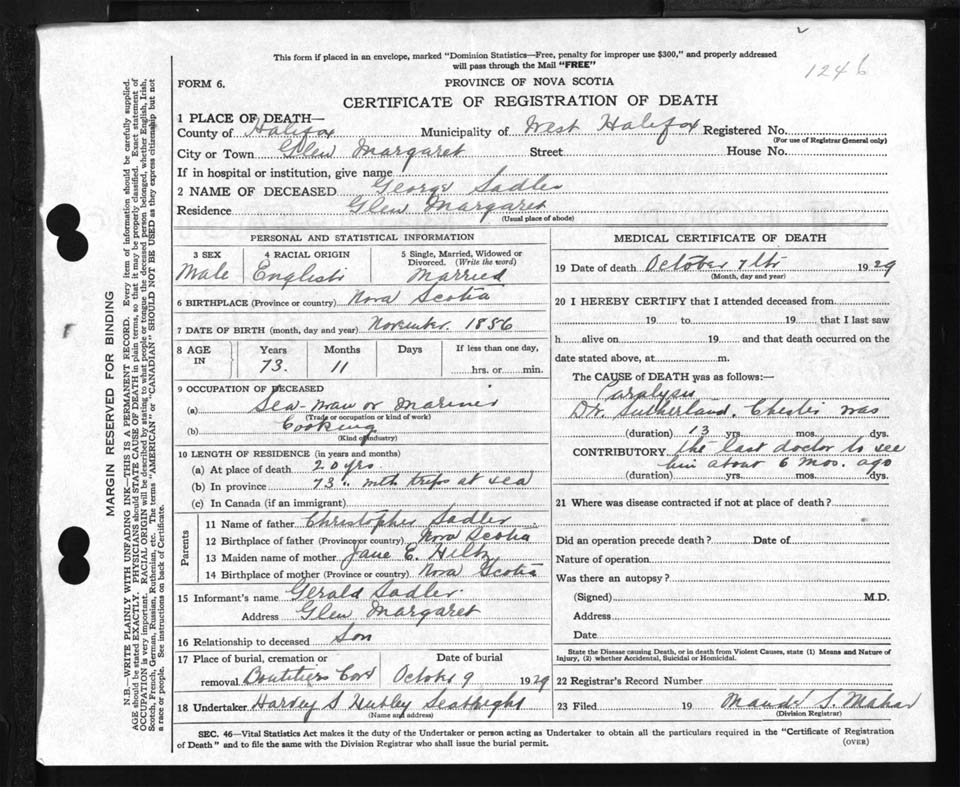 1246
This form if placed in an envelope, marked "Dominion Statistics—Free, penalty for improper use $300," and properly addressed
will pass through the Mail "FREE"
FORM 6.
PROVINCE OF NOVA SCOTIA
CERTIFICATE OF REGISTRATION OF DEATH
1 PLACE OF DEATH—
County of Halifax Municipality of West Halifax Registered No.
(For use of Registrar General only)
City or Town Glen Margaret Street House No.
If in hospital or institution, give name
2 NAME OF DECEASED George Sadler
Residence Glen Margaret
(Usual place of abode)
PERSONAL AND STATISTICAL INFORMATION
3 SEX 4 RACIAL ORIGIN 5 Single, Married, Widowed or
Divorced. (Write the word)
Male English Married
6 BIRTHPLACE (Province or country) Nova Scotia
7 DATE OF BIRTH (month, day and year) November 1856
8 AGE IN Years Months Days If less than one day,
73. 11 hrs. or min.
9 OCCUPATION OF DECEASED
(a) Sea-man or Mariner
(Trade or occupation or kind of work)
(b) Cooking
(Kind of industry)
10 LENGTH OF RESIDENCE (in years and months)
(a) At place of death 20 yrs.
(b) In province 73 " with trips at sea
(c) In Canada (if an immigrant)
Parents
11 Name of father Christopher Sadler
12 Birthplace of father (Province or country) Nova Scotia
13 Maiden name of mother Jane E. Hiltz
14 Birthplace of mother (Province or country) Nova Scotia
15 Informant's name Gerald Sadler.
Address Glen Margaret
16 Relationship to deceased Son
17 Place of burial, cremation or Date of burial
removal. Boutiliers Cove October 9 1929
18 Undertaker Harvey S Hubley Seabright
(Name and address)
MEDICAL CERTIFICATE OF DEATH
19 Date of death October 7th 1929
(Month, day and year)
20 I HEREBY CERTIFY that I attended deceased from
19 to 19 that I last saw
h alive on 19 and that death occurred on the
date stated above, at m.
The CAUSE of DEATH was as follows:—
Paralysis
Dr. Sutherland, Chester was
(duration) 13 yrs. mos. dys.
CONTRIBUTORY the last doctor to see
him about 6 mos. ago
(duration) yrs. mos. dys.
21 Where was disease contracted if not at place of death?
Did an operation precede death? Date of
Nature of operation
Was there an autopsy?
(Signed) M.D.
Address
Date
State the Disease causing Death, or in death from Violent Causes, state (1) Means and Nature of
Injury, (2) whether Accidental, Suicidal or Homicidal.
22 Registrar's Record Number
23 Filed 19 S.
(Division Registrar)
SEC. 46—Vital Statistics Act makes it the duty of the Undertaker or person acting as Undertaker to obtain all the particulars required in the "Certificate of Registration
of Death" and to file the same with the Division Registrar who shall issue the burial permit.
(OVER)
MARGIN RESERVED FOR BINDING
N.B.—WRITE PLAINLY WITH UNFADING INK—THIS IS A PERMANENT RECORD. Every item of information should be carefully supplied.
AGE should be stated EXACTLY. PHYSICIANS should STATE CAUSE OF DEATH in plain terms, so that it may be properly classified. Exact statement of
OCCUPATION is very important. RACIAL ORIGIN will be described by stating to what people or tongue the deceased person belonged, whether English, Irish,
Scotch, French, German, Russian, Ruthenian, etc. The terms "AMERICAN" or "CANADIAN" SHOULD NOT BE USED as they express citizenship but not
a race or people. See instructions on back of Certificate.